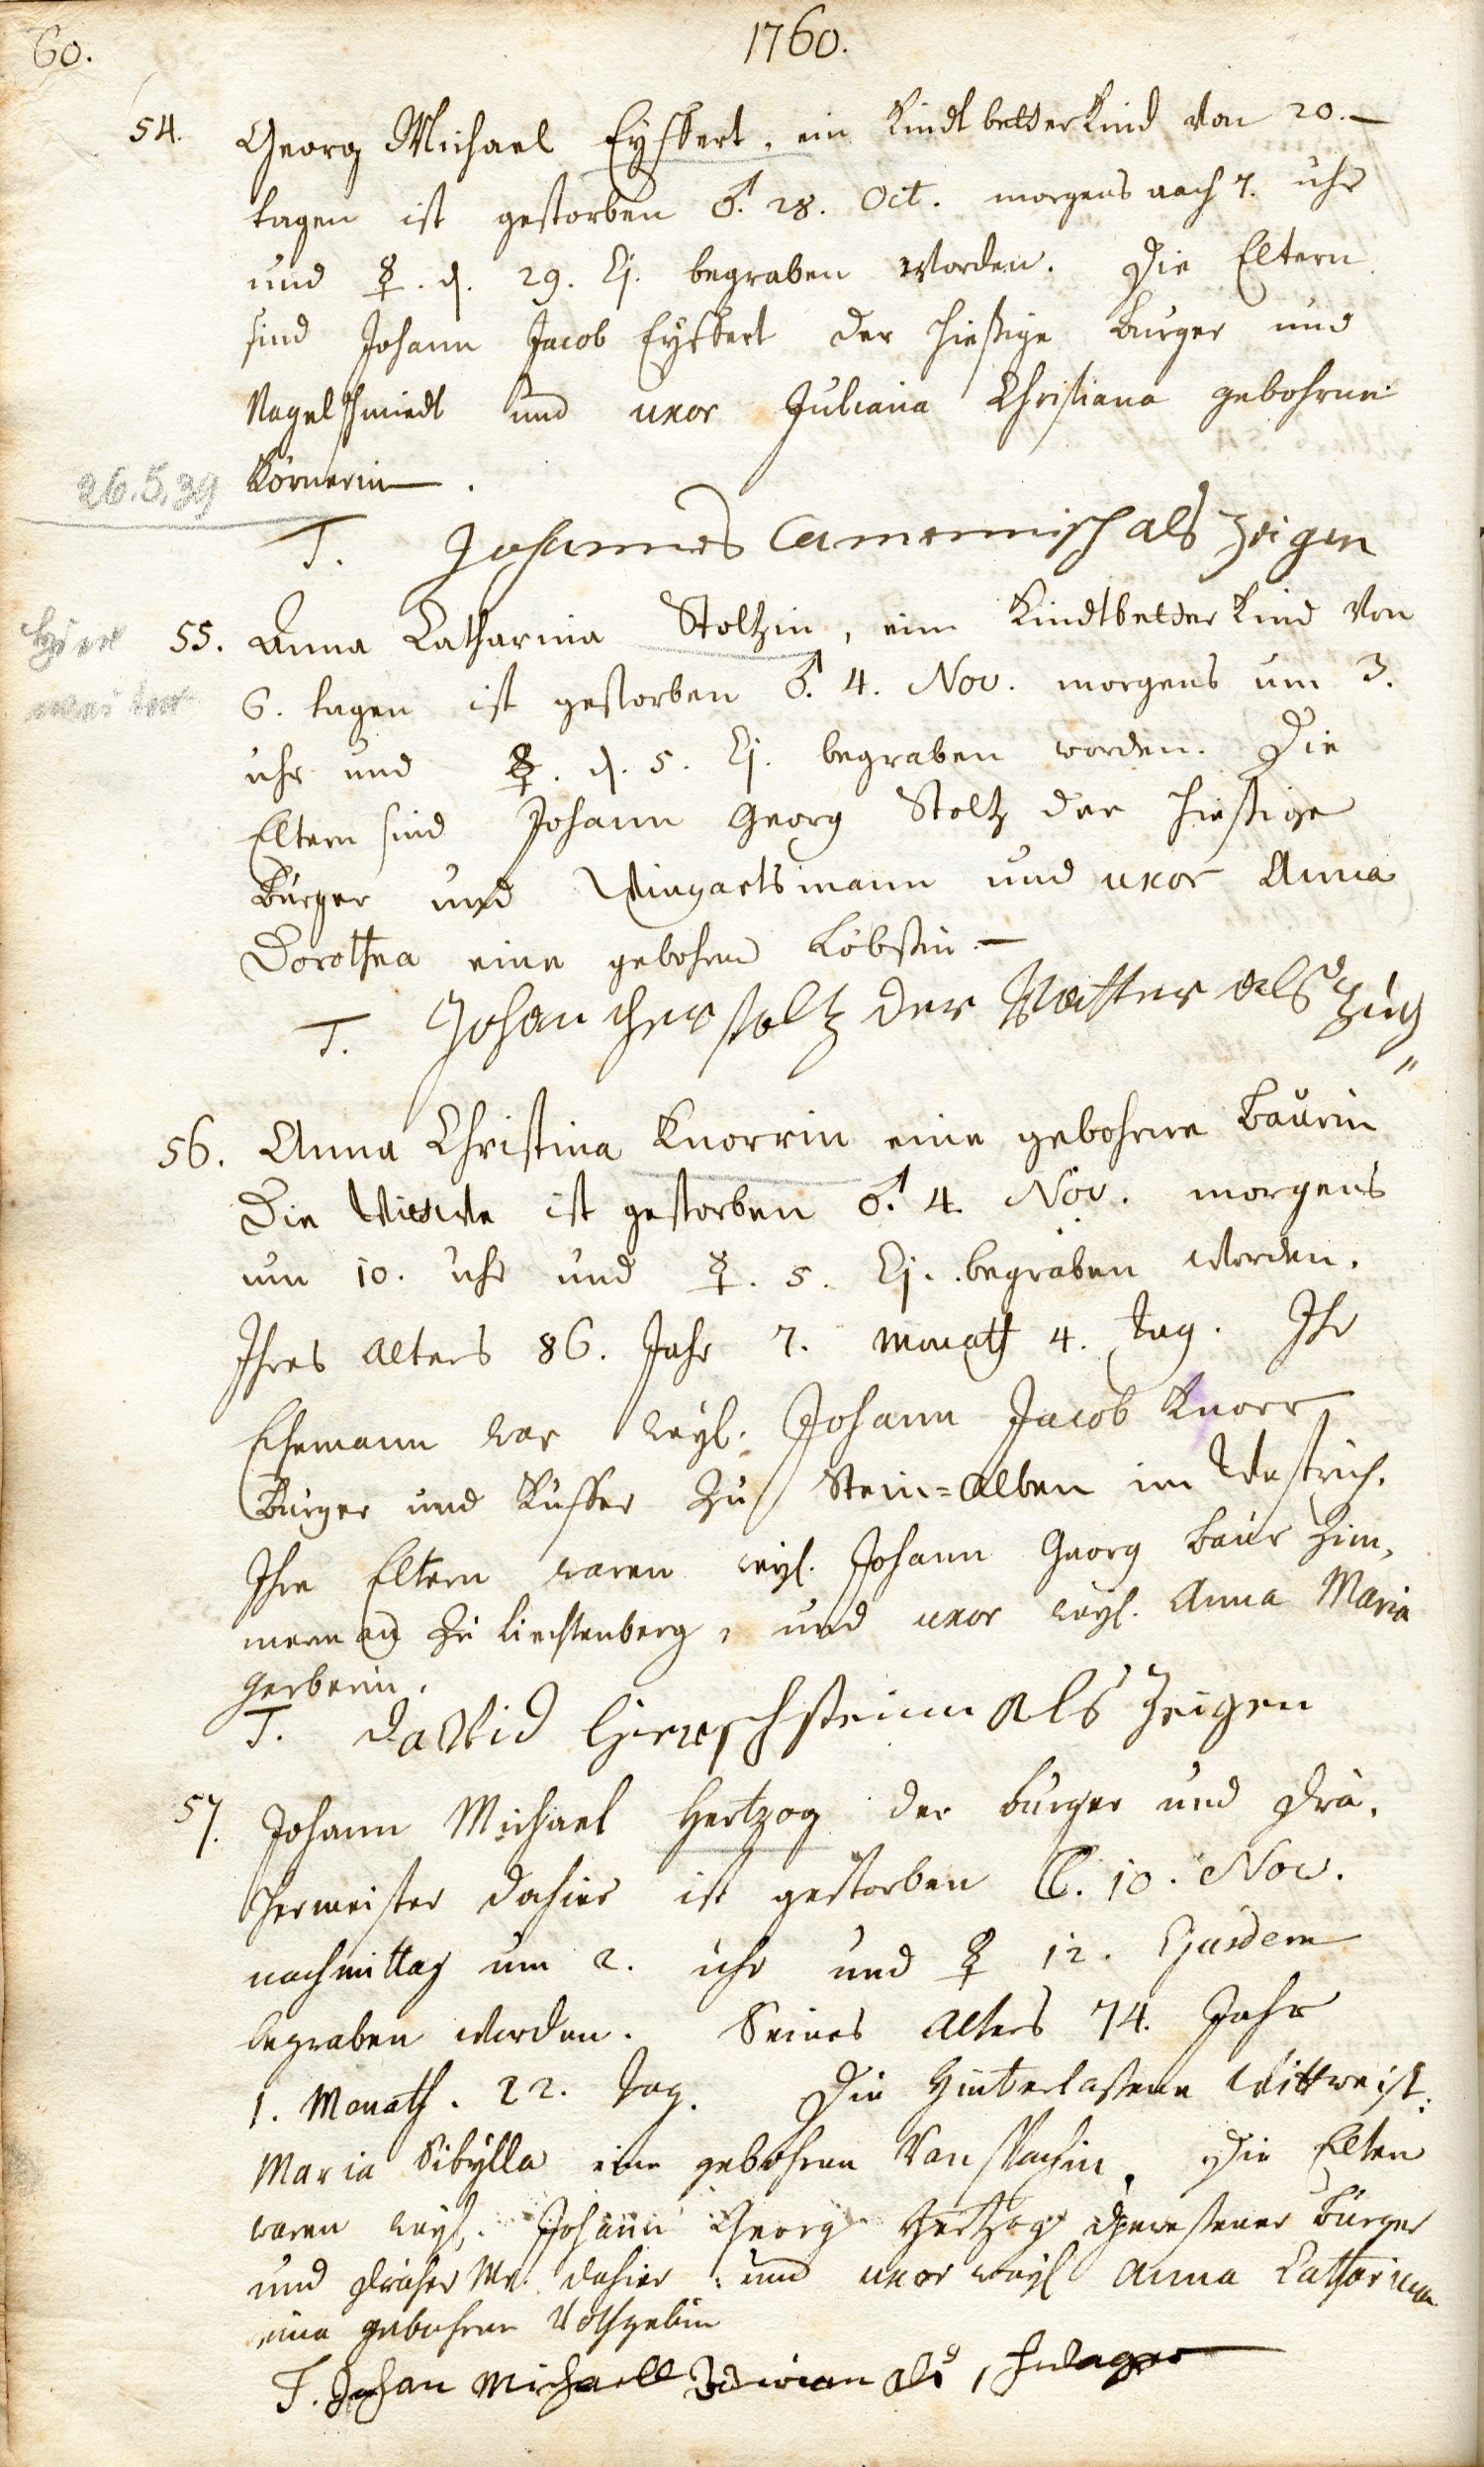 60.
1760.
54. Georg Michael Eyssert, ein Kindtbetterkind von 20.
tagen ist gestorben ♂. 28. Oct. morgens nach 7. uhr
und ☿. d. 29. Ej. begraben worden. Die Eltern
sind Johann Jacob Eyssert der hiesige Burger und
Nagelschmiedt und uxor Juliana Christiana gebohrne
Körnerin.
26.5.39
T. Johannes als Zeigen
hier
weiter
55. Anna Catharina Stoltzin, ein Kindtbetterkind von
6. tagen ist gestorben ♂. 4. Nov. morgens um 3.
uhr und ☿. d. 5. Ej. begraben worden. Die
Eltern sind Johann Georg Stoltz der hiesige
Burger und Wingartsmann und uxor Anna
Dorothea eine gebohrne Löbstin
T. Johan stoltz der Vatter als Zeug
56. Anna Christina Knorrin eine gebohrne Baurin
Die Wittwe ist gestorben ♂. 4. Nov. morgens
um 10. uhr und ☿. 5. Ej. begraben worden.
Ihres alters 86. Jahr 7. Monath 4. tag. Ihr
Ehemann war weyl. Johann Jacob Knorr
Burger und Küffer zu Stein=alben im Westrich.
Ihre Eltern waren weyl. Johann Georg Baur Zim,
merman zu Liechtenberg, und uxor weyl. Anna Maria
Gerberin.
T. david als Zeigen
57. Johann Michael Hertzog der burger und Drä,
hermeister dahier ist gestorben ☾. 10. Nov.
nachmittag um 2. uhr und ☿ 12. Ejusdem
begraben worden. Seines alters 74. Jahr
1. Monath. 22. tag. Die Hinterlassene Wittwe ist:
Maria Sibÿlla eine gebohrne. Die Eltern
waren weyl. Johann Georg Hertzog gewesener Bürger
und Dräher Mr. dahier: und uxor weyl Anna Catharina
eine gebohrne
T. Johan Michaell als